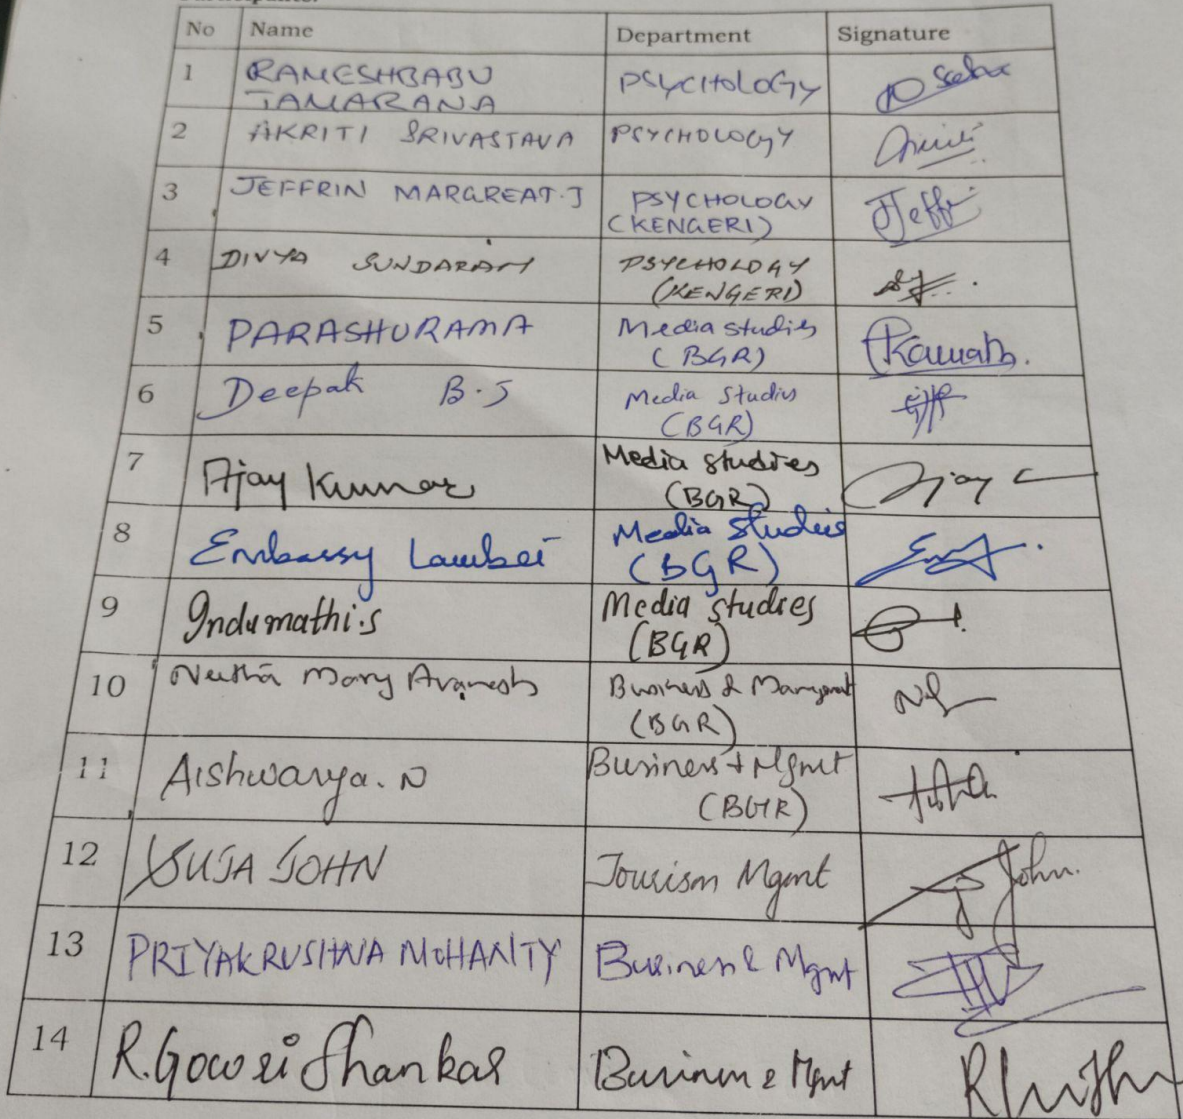 No Name Department Signature
1 RAMESHBABU TAMARANA PSYCHOLOGY
2 AKRITI SRIVASTAVA PSYCHOLOGY
3 JEFFRIN MARGREAT.J PSYCHOLOGY (KENGERI) Jeffri
4 DIVYA SUNDARAM PSYCHOLOGY (KENGERI)
5 PARASHURAMA Media studies (BGR)
6 Deepak B.S Media Studies (BGR)
7 Ajay Kumar Media studies (BGR) Ajay
8 Embassy Lawbei Media Studies (BGR)
9 Indumathi.S Media studies (BGR)
10 Mary Business & Management (BGR)
11 Aishwarya.N Business + Mgmt (BGR)
12 SUJA JOHN Tourism Mgmt John.
13 PRIYAKRUSHNA MOHANTY Business & Mgmt
14 R.Gowri Shankar Business & Mgmt